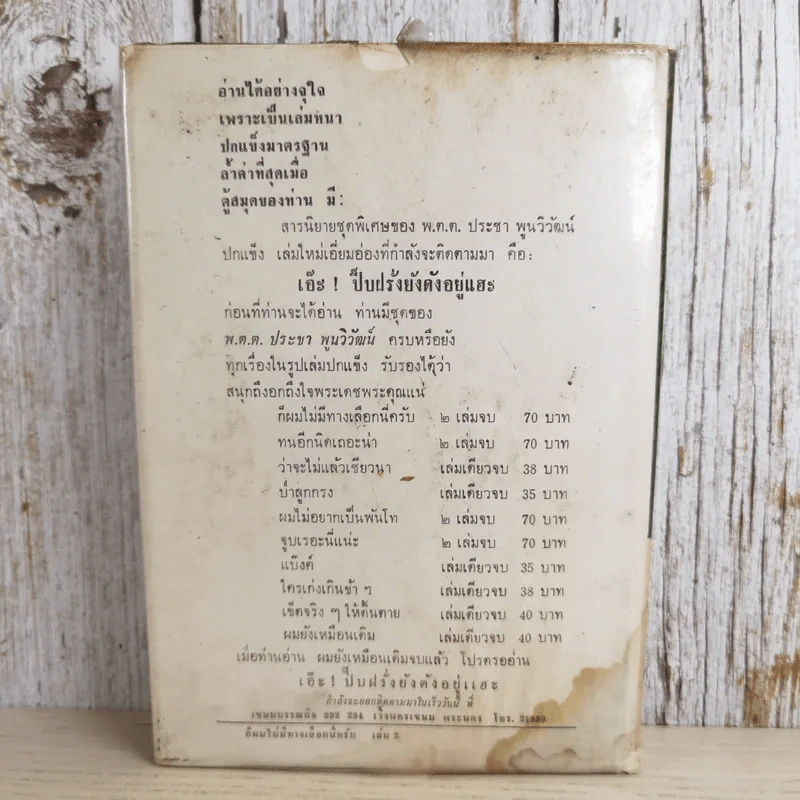 อ่านได้อย่างจุใจ
เพราะเป็นเล่มหนา
ปกแข็งมาตรฐาน
ล้ำค่าที่สุดเมื่อ
ตู้สมุดของท่าน มี:
สารนิยายชุดพิเศษของ พ.ต.ต. ประชา พูนวิวัฒน์
ปกแข็ง เล่มใหม่เอี่ยมอ่องที่กำลังจะติดตามมา คือ:
เอ๊ะ ! ปี๊บฝรั่งยังดังอยู่แฮะ
ก่อนที่ท่านจะได้อ่าน ท่านมีชุดของ
พ.ต.ต. ประชา พูนวิวัฒน์ ครบหรือยัง
ทุกเรื่องในรูปเล่มปกแข็ง รับรองได้ว่า
สนุกถึงอกถึงใจพระเดชพระคุณแน่
ก็ผมไม่มีทางเลือกนี่ครับ ๒ เล่มจบ 70 บาท
ทนอีกนิดเถอะน่า ๒ เล่มจบ 70 บาท
ว่าจะไม่แล้วเชียวนา เล่มเดียวจบ 38 บาท
ป่าลูกกรง เล่มเดียวจบ 35 บาท
ผมไม่อยากเป็นพันโท ๒ เล่มจบ 70 บาท
จูบเรอะนี่แน่ะ ๒ เล่มจบ 70 บาท
แบ๊งค์ เล่มเดียวจบ 35 บาท
ใครเก่งเกินข้า ๆ เล่มเดียวจบ 38 บาท
เช็ดจริง ๆ ให้ดิ้นตาย เล่มเดียวจบ 40 บาท
ผมยังเหมือนเดิม เล่มเดียวจบ 40 บาท
เมื่อท่านอ่าน ผมยังเหมือนเดิมจบแล้ว โปรดรออ่าน
เอ๊ะ ! ปี๊บฝรั่งยังดังอยู่แฮะ
กำลังจะออกติดตามมาในเร็ววันนี้ ที่
เขษมบรรณกิจ 252 254 เวิ้งนครเขษม พระนคร โทร.
ก็ผมไม่มีทางเลือกนี่ครับ เล่ม 2